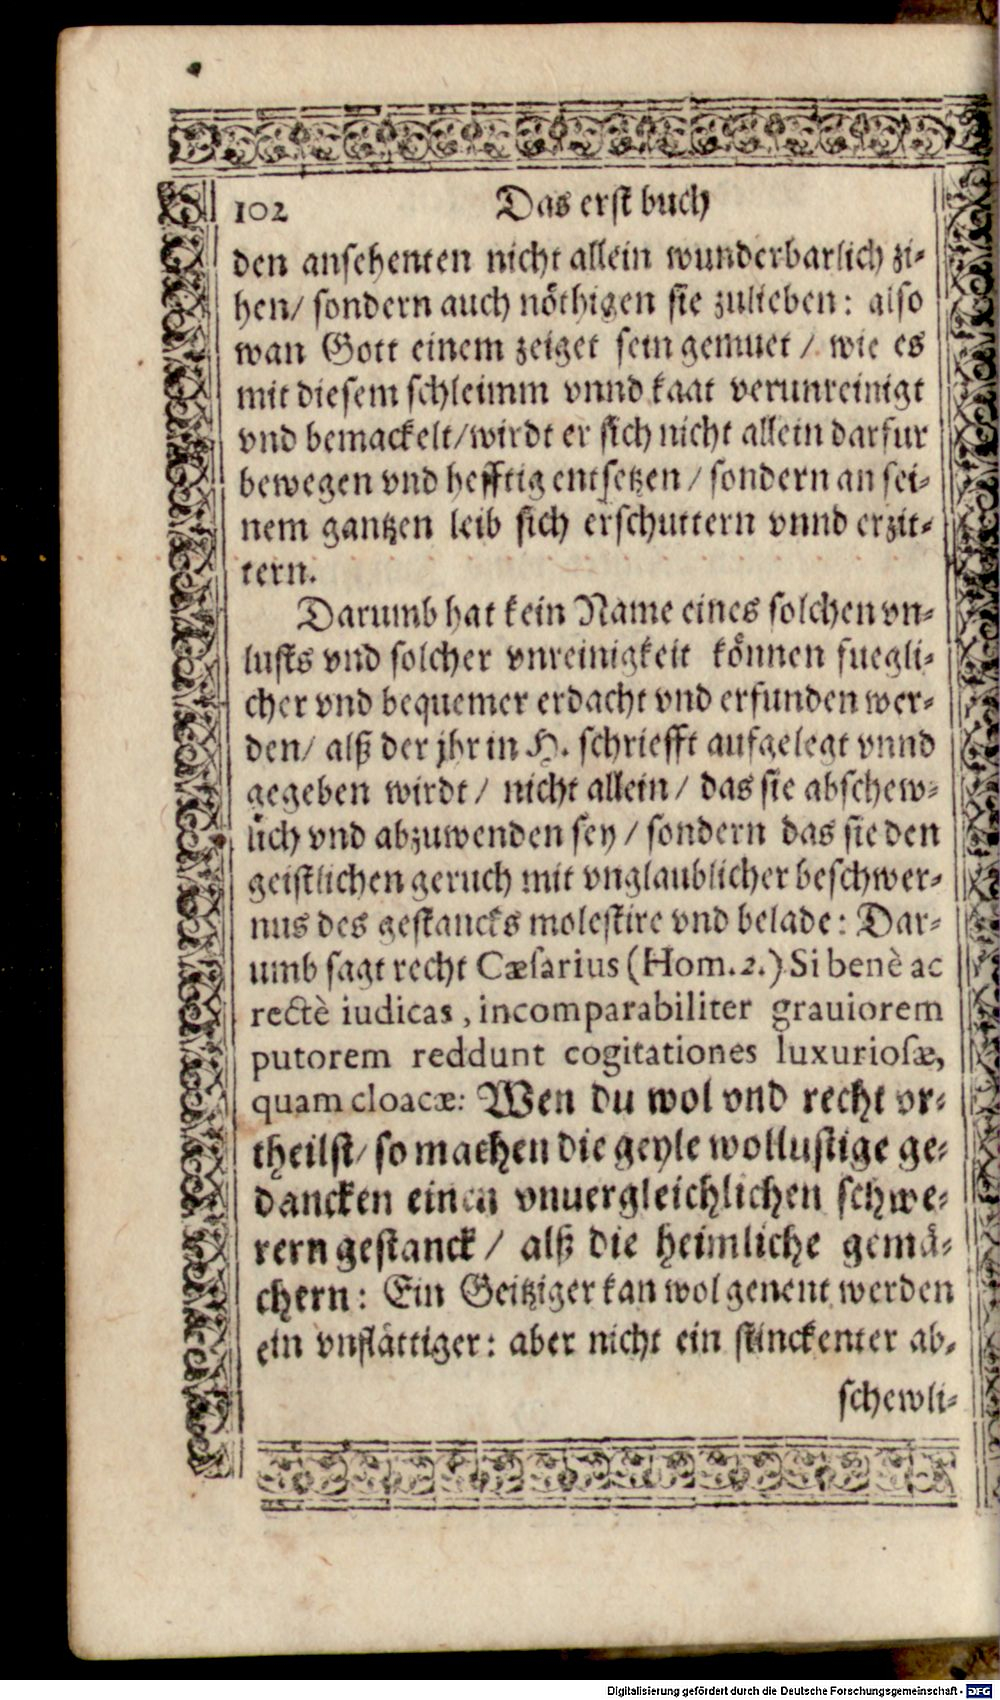 102 Das erst buch
den ansehenten nicht allein wunderbarlich zi-
hen/ sondern auch nöthigen sie zulieben: also
wan Gott einem zeiget sein gemuet / wie es
mit diesem schleimm vnnd kaat verunreinigt
vnd bemackelt/wirdt er sich nicht allein darfur
bewegen vnd hefftig entsetzen / sondern an sei-
nem gantzen leib sich erschuttern vnnd erzit-
tern.
Darumb hat kein Name eines solchen vn-
lusts vnd solcher vnreinigkeit können fuegli-
cher vnd bequemer erdacht vnd erfunden wer-
den/ alß der jhr in H. schriefft aufgelegt vnnd
gegeben wirdt / nicht allein / das sie abschew-
lich vnd abzuwenden sey / sondern das sie den
geistlichen geruch mit vnglaublicher beschwer-
nus des gestancks molestire vnd belade: Dar-
umb sagt recht Cæsarius (Hom.2.) Si benè ac
rectè iudicas, incomparabiliter grauiorem
putorem reddunt cogitationes luxuriosæ,
quam cloacæ: Wen du wol vnd recht vr-
theilst/ so machen die geyle wollustige ge-
dancken einen vnuergleichlichen schwe-
rern gestanck / alß die heimliche gemä-
chern: Ein Geitziger kan wol genent werden
ein vnflättiger: aber nicht ein stinckenter ab-
schewli-
Digitalisierung gefördert durch die Deutsche Forschungsgemeinschaft - DFG